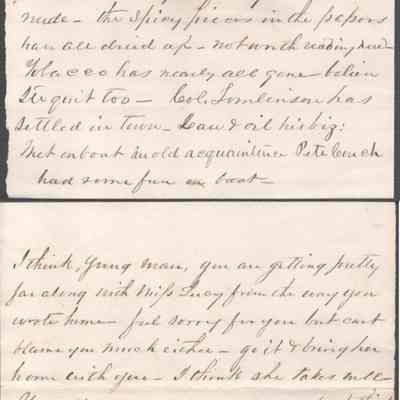 nude - the spicy pieces in the papers
have all dried up - not worth reading now -
Tobacco has nearly all gone - believe
I'll quit too - Col. Tomlinson has
settled in town - Law & oil his biz:
Met on boat an old acquaintance Pete Couch
had some fun on boat -
I think, Yung man, you are getting pretty
far along with Miss Lucy from the way you
wrote home - feel sorry for you but can't
blame you much either - go it & bring her
home with you - I think she takes well -